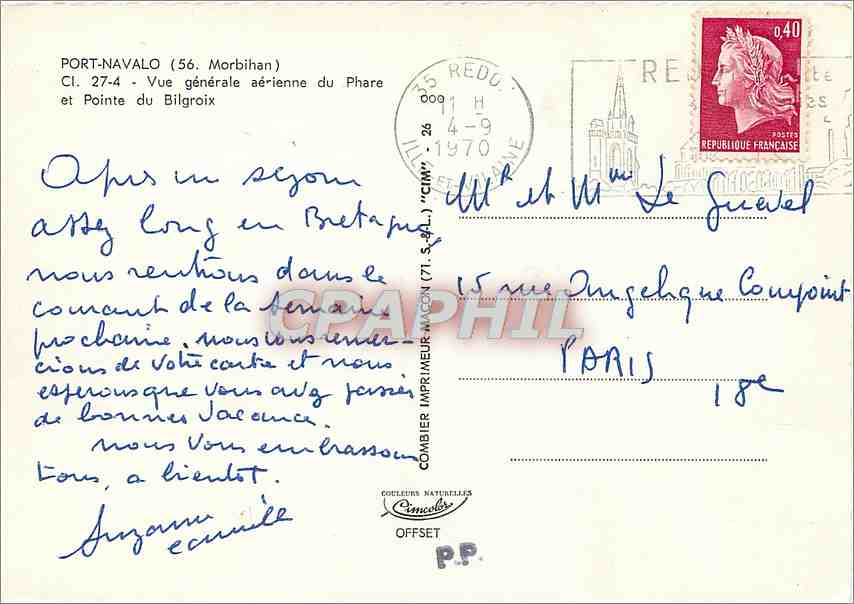 PORT-NAVALO (56. Morbihan)
Cl. 27-4 - Vue générale aérienne du Phare
et Pointe du Bilgroix
Apres un séjour
assez long en Bretagne,
nous rentrons dans le
courant de la semaine
prochaine. nous vous remer-
cions de votre carte et nous
esperons que vous avez passés
de bonnes vacances.
nous vous embrassons
tous, a bientot.
Suzanne
Camille
COMBIER IMPRIMEUR MACON (71. S.-&-L.) "CIM" - 26
COULEURS NATURELLES
Cimcolor
OFFSET
P.P.
35 REDO
11 H
4-9
1970
ILLE-ET-VILAINE
RE
0,40
POSTES
REPUBLIQUE FRANÇAISE
Mr et Mme Le Guevel
15 rue Angelique Compoint
PARIS
18e
CPAPHIL